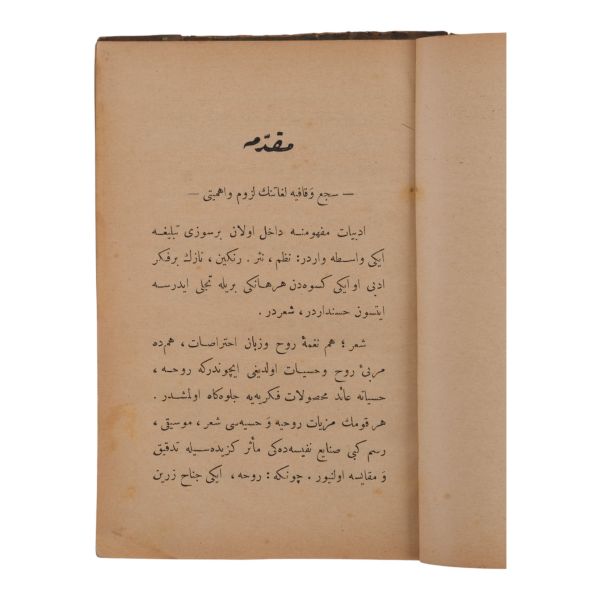 مقدّمه
— سجع وَ قافیه لغاتنك لزوم و اهمیتی —
ادبیات مفهومنه داخل اولان برسوزی تبلیغه
ایکی واسطه واردر: نظم ، نثر . رنکین ، نازك برفکر
ادبی او ایکی کسوه‌دن هرهانکی بریله تجلی ایدرسه
ایتسون حسنداردر ، شعردر .
شعر ؛ هم نغمهٔ روح وزبان احتراصات ، هم‌ده
مربیٔ روح و حسیات اولدیغی ایچوندرکه روحه ،
حسیاته عائد محصولات فکریه‌یه جلوه‌کاه اولمشدر .
هر قومك مزیات روحیه وَ حسیه‌سی شعر ، موسیقی ،
رسم کبی صنایع نفیسه‌ده‌کی مآثر کزیده‌سیله تدقیق
وَ مقایسه اولنیور . چونکه : روحه ، ایکی جناح زرین